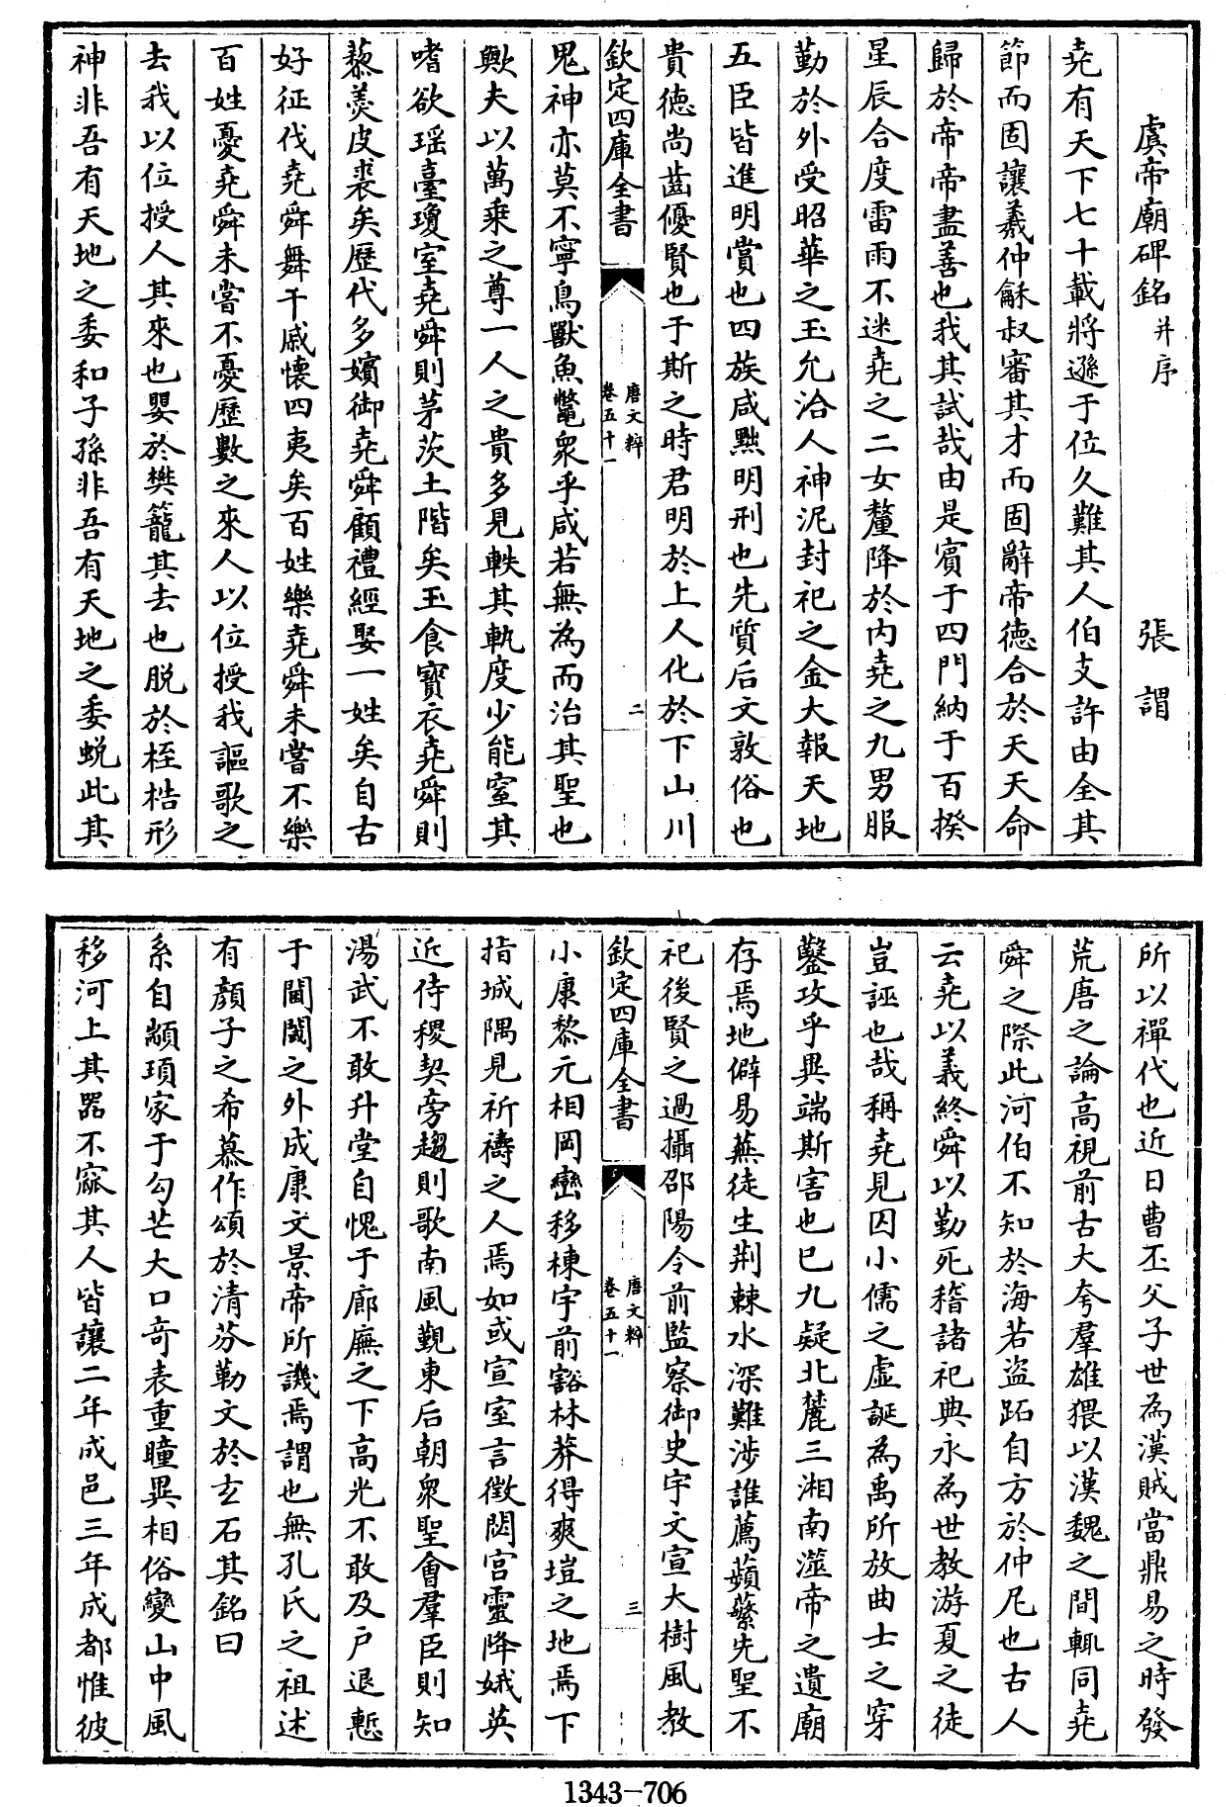 虞帝廟碑銘并序 張謂
堯有天下七十載將遜于位久難其人伯支許由全其
節而固讓羲仲龢叔審其才而固辭帝德合於天天命
歸於帝帝盡善也我其試哉由是賓于四門納于百揆
星辰合度雷雨不迷堯之二女釐降於內堯之九男服
勤於外受昭華之玉允洽人神泥封祀之金大報天地
五臣皆進明賞也四族咸黜明刑也先質后文敦俗也
貴德尚齒優賢也于斯之時君明於上人化於下山川
欽定四庫全書 唐文粹 卷五十一 二
鬼神亦莫不寧鳥獸魚鼈衆乎咸若無為而治其聖也
歟夫以萬乘之尊一人之貴多見軼其軌度少能窒其
嗜欲瑶臺瓊室堯舜則茅茨土階矣玉食寶衣堯舜則
藜羹皮裘矣歷代多嬪御堯舜顧禮經娶一姓矣自古
好征伐堯舜舞干戚懷四夷矣百姓樂堯舜未嘗不樂
百姓憂堯舜未嘗不憂歷數之來人以位授我謳歌之
去我以位授人其來也嬰於樊籠其去也脫於桎梏形
神非吾有天地之委和子孫非吾有天地之委蛻此其
所以禪代也近日曹丕父子世為漢賊當鼎易之時發
荒唐之論高視前古大夸羣雄猥以漢魏之間輒同堯
舜之際此河伯不知於海若盜跖自方於仲尼也古人
云堯以義終舜以勤死稽諸祀典永為世教游夏之徒
豈誣也哉稱堯見囚小儒之虛誕為禹所放曲士之穿
鑿攻乎異端斯害也已九疑北麓三湘南澨帝之遺廟
存焉地僻易蕪徒生荆棘水深難涉誰薦蘋蘩先聖不
祀後賢之過攝邵陽令前監察御史宇文宣大樹風教
欽定四庫全書 唐文粹 卷五十一 三
小康黎元相岡巒移棟宇前豁林莽得爽塏之地焉下
指城隅見祈禱之人焉如或宣室言徵閟宫靈降娥英
近侍稷契旁趨則歌南風觀東后朝衆聖會羣臣則知
湯武不敢升堂自愧于廊廡之下高光不敢及户退慙
于閫閾之外成康文景帝所譏焉謂也無孔氏之祖述
有顔子之希慕作頌於清芬勒文於玄石其銘曰
系自顓頊家于勾芒大口奇表重瞳異相俗變山中風
移河上其器不窳其人皆讓二年成邑三年成都惟彼
1343-706